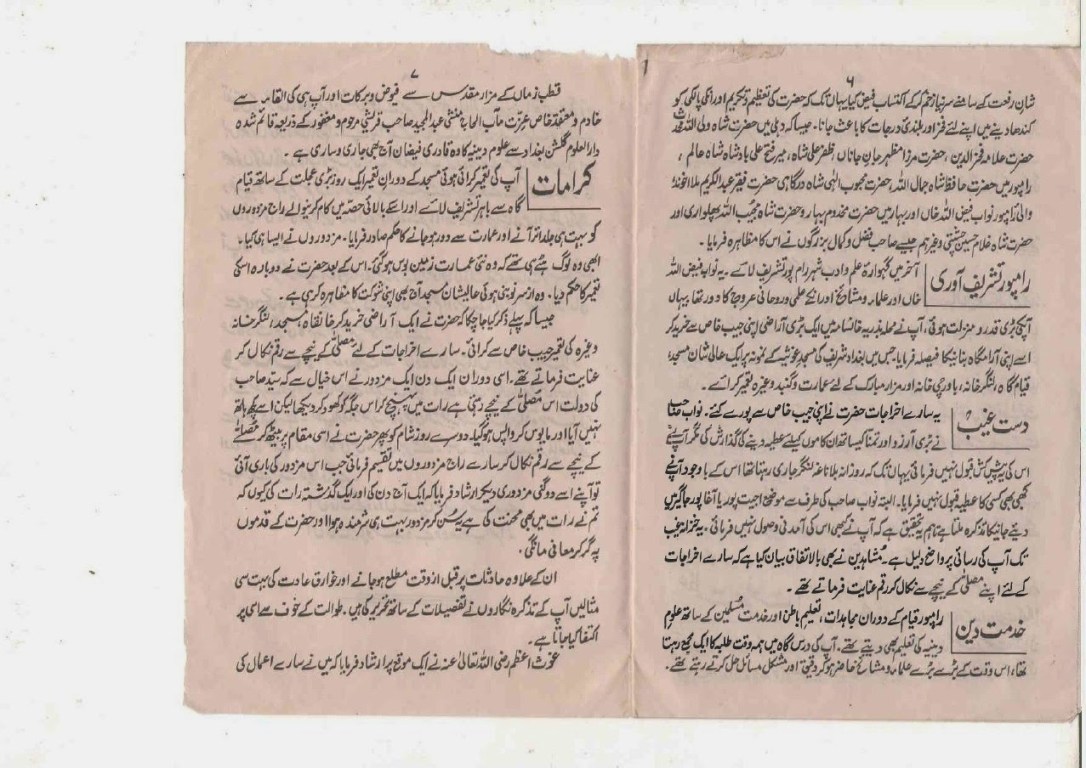 ۶
شان رفعت کے سامنے سر نیاز خم کر کے اکتساب فیض کیا یہاں تک کہ حضرت کی تعظیم و تکریم اور انکی پالکی کو
کندھا دینے میں اپنے لئے فخر اور بلندی درجات کا باعث جانا۔ جیسا کہ دہلی میں حضرت شاہ ولی اللہ محدث
حضرت علامہ فخر الدین، حضرت مرزا مظہر جان جاناں، ظفر علی شاہ، میر فتح علی بادشاہ شاہ عالم،
رامپور میں حضرت حافظ شاہ جمال اللہ، حضرت محبوب الٰہی شاہ درگاہی حضرت فقیر عبد الکریم ملا اخوند
والی رامپور نواب فیض اللہ خاں اور بہار میں حضرت مخدوم بہار و حضرت شاہ مجیب اللہ پھلواری اور
حضرت شاہ غلام حسین چشتی وغیرہم جیسے صاحب فضل و کمال بزرگوں نے اس کا مظاہرہ فرمایا۔
رامپور تشریف آوری
آخر میں گہوارۂ علم و ادب شہر رام پور تشریف لائے۔ یہ نواب فیض اللہ
خاں اور علماء و مشائخ اور انکے علمی و روحانی عروج کا دور تھا یہاں
آپکی بڑی قدر و منزلت ہوئی، آپ نے محلہ میں ایک بڑی آراضی اپنی جیب خاص سے خرید کر
اسے اپنی آرامگاہ بنانیکا فیصلہ فرمایا، جس میں بغداد شریف کی مسجد غوثیہ کے نمونہ پر ایک عالی شان مسجد،
قیام گاہ، لنگر خانہ، باورچی خانہ اور مزار مبارک کے لئے عمارت و گنبد وغیرہ تعمیر کرائے۔
دست غیب
یہ سارے اخراجات حضرت نے اپنی جیب خاص سے پورے کئے۔ نواب صاحب
نے بڑی آرزو اور تمنا کیساتھ ان کاموں کیلئے عطیہ دینے کی گذارش کی مگر آپ نے
اس کی پیش کش قبول نہیں فرمائی یہاں تک کہ روزانہ بلا ناغہ لنگر جاری رہتا تھا اس کے باوجود آپنے
کبھی بھی کسی کا عطیہ قبول نہیں فرمایا۔ البتہ نواب صاحب کی طرف سے موضع اجیت پور یا آغا پور جاگیر میں
دیئے جانیکا تذکرہ ملتا ہے تاہم یہ تحقیق ہے کہ آپ نے کبھی اس کی آمدنی وصول نہیں فرمائی، یہ خزانہ غیب
تک آپ کی رسائی پر واضح دلیل ہے۔ مشاہدین نے بھی بالاتفاق بیان کیا ہے کہ سارے اخراجات
کے لئے اپنے مصلیٰ کے نیچے سے نکال کر رقم عنایت فرماتے تھے۔
خدمت دین
رامپور قیام کے دوران مجاہدات، تعلیم باطن اور خدمت مسلمین کے ساتھ علوم
دینیہ کی تعلیم بھی دیتے تھے، آپ کی درس گاہ میں ہمہ وقت طلبہ کا ایک مجمع رہتا
تھا، اس وقت کے بڑے بڑے علماء و مشائخ حاضر ہو کر دقیق اور مشکل مسائل حل کرتے رہتے تھے۔
۷
قطب زماں کے مزار مقدس سے فیوض و برکات اور آپ ہی کی القاء سے
خادم و معتقد خاص عزت مآب الحاج منشی عبد المجید صاحب قریشی مرحوم و مغفور کے ذریعہ قائم شدہ
دار العلوم گلشن بغداد سے علوم دینیہ کا وہ قادری فیضان آج بھی جاری و ساری ہے۔
کرامات
آپ کی تعمیر کرائی ہوئی مسجد کے دوران تعمیر ایک روز بڑی عجلت کے ساتھ قیام
گاہ سے باہر تشریف لائے اور اسکے بالائی حصہ میں کام کرنیوالے راج مزدوروں
کو بہت ہی جلد اتر آنے اور عمارت سے دور ہو جانے کا حکم صادر فرمایا۔ مزدوروں نے ایسا ہی کیا۔
ابھی وہ لوگ ہٹے ہی تھے کہ وہ نئی عمارت زمین بوس ہو گئی۔ اس کے بعد حضرت نے دوبارہ اسکی
تعمیر کا حکم دیا۔ وہ از سر نو بنی ہوئی عالیشان مسجد آج بھی اپنی شوکت کا مظاہرہ کر رہی ہے۔
جیسا کہ پہلے ذکر کیا جا چکا کہ حضرت نے ایک آراضی خرید کر خانقاہ، مسجد، لنگر خانہ
وغیرہ کی تعمیر جیب خاص سے کرائی۔ سارے اخراجات کے لئے مصلیٰ کے نیچے سے رقم نکال کر
عنایت فرماتے تھے۔ اسی دوران ایک دن ایک مزدور نے اس خیال سے کہ سید صاحب
کی دولت اس مصلیٰ کے نیچے دبی ہے رات میں پہنچ کر اس جگہ کو کھود کر دیکھا لیکن اسے کچھ ہاتھ
نہیں آیا اور مایوس ہو کر واپس ہو گیا۔ دوسرے روز شام کو پھر حضرت نے اسی مقام پر بیٹھ کر مصلیٰ
کے نیچے سے رقم نکال کر سارے راج مزدوروں میں تقسیم فرمائی جب اس مزدور کی باری آئی
تو آپنے اسے دوگنی مزدوری دیکر ارشاد فرمایا کہ ایک آج دن کی اور ایک گذشتہ رات کی کیوں کہ
تم نے رات میں بھی محنت کی ہے یہ سن کر مزدور بہت ہی شرمندہ ہوا اور حضرت کے قدموں
پہ گر کر معافی مانگی۔
ان کے علاوہ حادثات پر قبل از وقت مطلع ہو جانے اور خوارق عادت کی بہت سی
مثالیں آپ کے تذکرہ نگاروں نے تفصیلات کے ساتھ تحریر کی ہیں۔ طوالت کے خوف سے اسی پر
اکتفا کیا جاتا ہے۔
غوث اعظم رضی اللہ تعالیٰ عنہ نے ایک موقع پر ارشاد فرمایا کہ میں نے سارے اعمال کی